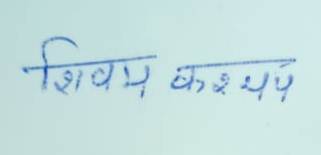 शिवम कश्यप